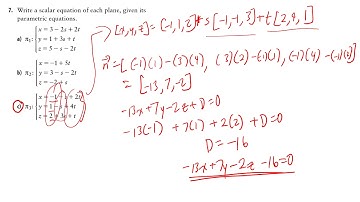 7. Write a scalar equation of each plane, given its
parametric equations.
a) π₁: { x = 3 − 2s + 2t
y = 1 + 3s + t
z = 5 − s − 2t
b) π₂: { x = −1 + 5t
y = 3 − s − 2t
z = −2 + s
c) π₃: { x = −1 − s + 2t
y = 1 − s + 4t
z = 2 + 3s + t
[x,y,z] = [-1,1,2] + s[-1,-1,3] + t[2,4,1]
n = [(-1)(1) - (3)(4), (3)(2) - (-1)(1), (-1)(4) - (-1)(2)]
= [-13, 7, -2]
-13x + 7y - 2z + D = 0
-13(-1) + 7(1) + 2(2) + D = 0
D = -16
-13x + 7y - 2z - 16 = 0